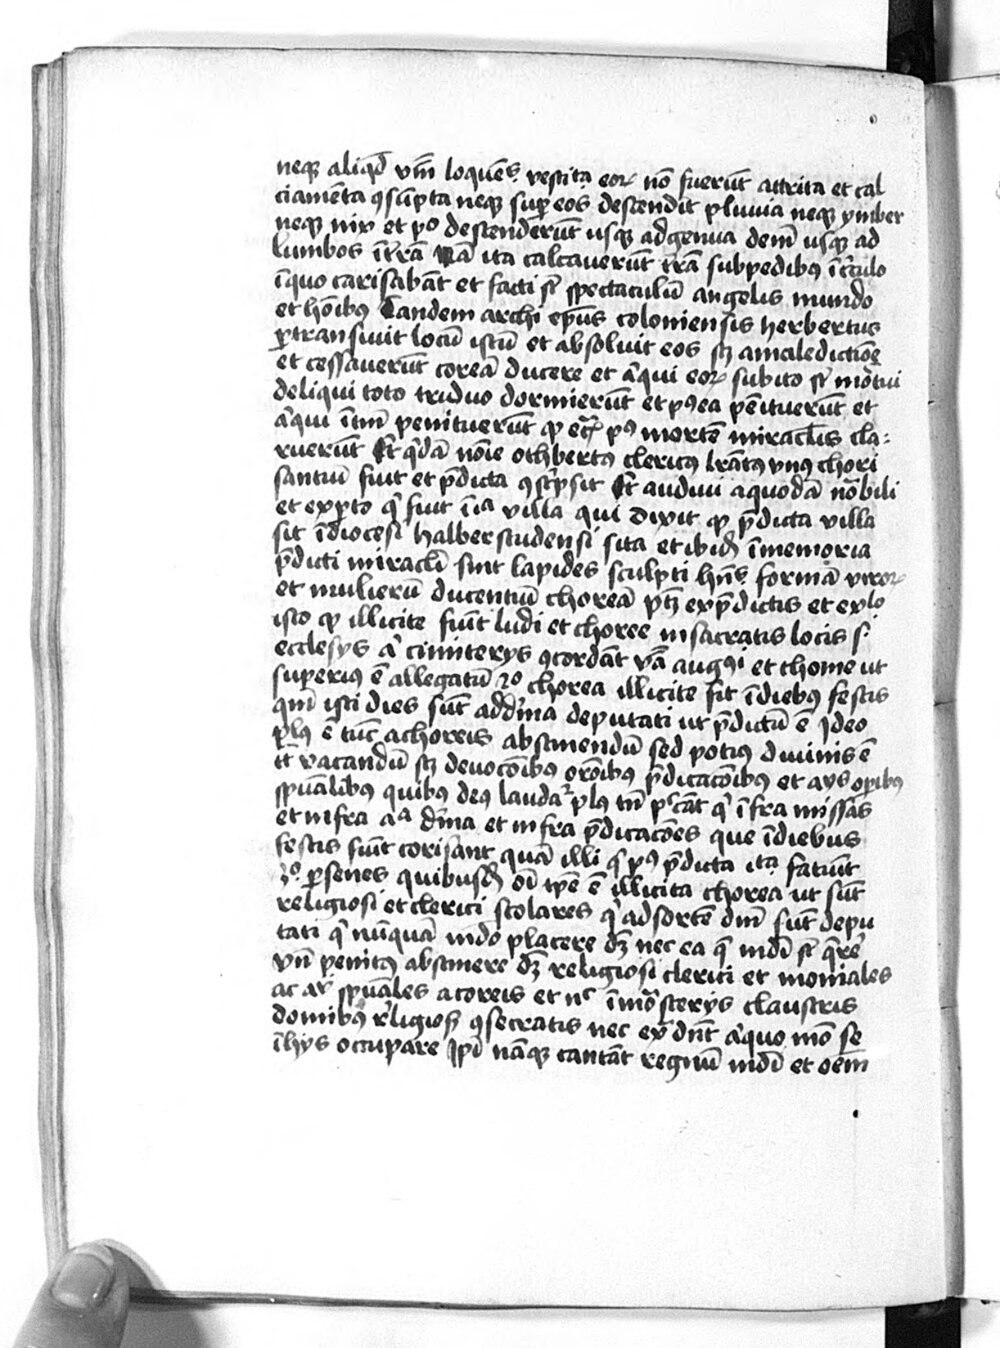 neqꝫ aliqͩ vnͫ loquēs vestita eoꝝ nō fuerūt attrita et cal
ciamēta ꝯsūpta neqꝫ suꝑ eos descendit pluuia neqꝫ ymber
neqꝫ nix et pͦ descenderūt usqꝫ ad genua demū usqꝫ ad
lumbos ī trā Nā ita calcauerūt trā sub pedibꝰ ī cͥculo
ī quo carisabāt et facti sͭ spectaculū angelis mundo
et hoībꝰ Tandem archi epūs coloniensis herbertus
ꝑtransiuit locū istū et absoluit eos sꝫ a maledictiōe
et cessauerūt coreā ducere et aͥqui eoꝝ subito sͭ moͬtui
deliqui toto triduo dormierūt et pꝰea penituerūt et
aͥqui ītm̄ penituerūt ꝙ ecͣ pꝰ mortē miraclīs cla-
ruerūt Et qͥdā noīe othbertꝰ clericꝰ lrātꝰ vnꝰ chori
santiū fuit et p̄dicta ꝯscͥpsit Et audiui a quodā nobili
et exꝑto qͥ fuit ī ia villa qui dixit ꝙ p̄dicta villa
sit ī diocesi halberstudensi sita et ibidē ī memoria
p̄dicti miraclī sint lapides sculpti hn̄s formā viroꝝ
et mulierū ducentiū choreā ptꝫ ex p̄dictis et ex loͦ
isto ꝙ illicite fiūt ludi et choree in sacratis locis sꝫ
ecclesijs aͥ cimiterijs ꝯcordāt vͣba augꝰi et thome ut
superiꝰ ē allegatū 2ͦ chorea illicite fit ī diebꝰ festis
qm̄ isti dies sūt ad dīna deputati ut p̄dictū ē Ideo
plꝰ ē tūc a choreis abstinendū sed potiꝰ diuinis ē
tc̄ vacandū sꝫ deuocōibꝰ orōibꝰ p̄dicacōibꝰ et aijs oꝑibꝰ
spūalibꝰ quibus deꝰ laudaͬ plꝰ tn̄ pͨcāt qͥ īfra missas
et infra aͣa dīna et infra p̄dicacōes que ī diebus
festis fiūt corisant quā illi qͥ pꝰ p̄dicta ita faciūt
3ͦ ꝑsones quibusdā oī tp̄e ē illicita chorea ut sūt
religiosi et clerici scolares qͥ ad sortē dnī sūt depu
tati qͥ nūquā mūdo placere dꝫ nec ea q̄ mūdi sͭ qͣrere
vn̄ penitꝰ abstinere dꝫ religiosi clerici et moniales
ac aij spūales a coreis et nͨ ī moͣsterijs claustris
domibꝰ religiosꝫ ꝯsecratis nec ex dn̄t aͥquo mō se
ī hijs occupare Ip̄i nāqꝫ cantāt regnū mūdi et oem̄